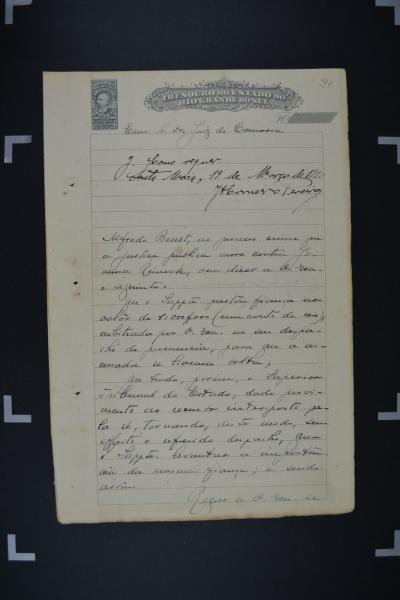 91
THESOURO DO ESTADO DO
RIO GRANDE DO SUL
Exmo. Sr. Dr. Juiz de Comarca
J. Como requer.
Santa Maria, 19 de Março de
Alfredo Benet, no processo crime que
a justiça publica move contra
vem dizer a V. Exa.
o seguinte:
Que o Suppte. prestou fiança no
valor de 1:000$000 (um conto de reis)
arbitrada por V. Exa. no seu despa-
cho de pronuncia, para que a ac-
cusada
Que tendo, porém, o Superior
Tribunal do Estado, dado provi-
mento ao recurso interposto pe-
la ré, tornando, deste modo, sem
effeito o referido despacho, quer
o Suppte. levantar a importan-
cia da mesma fiança; e sendo
assim
Requer a V. Exa. se